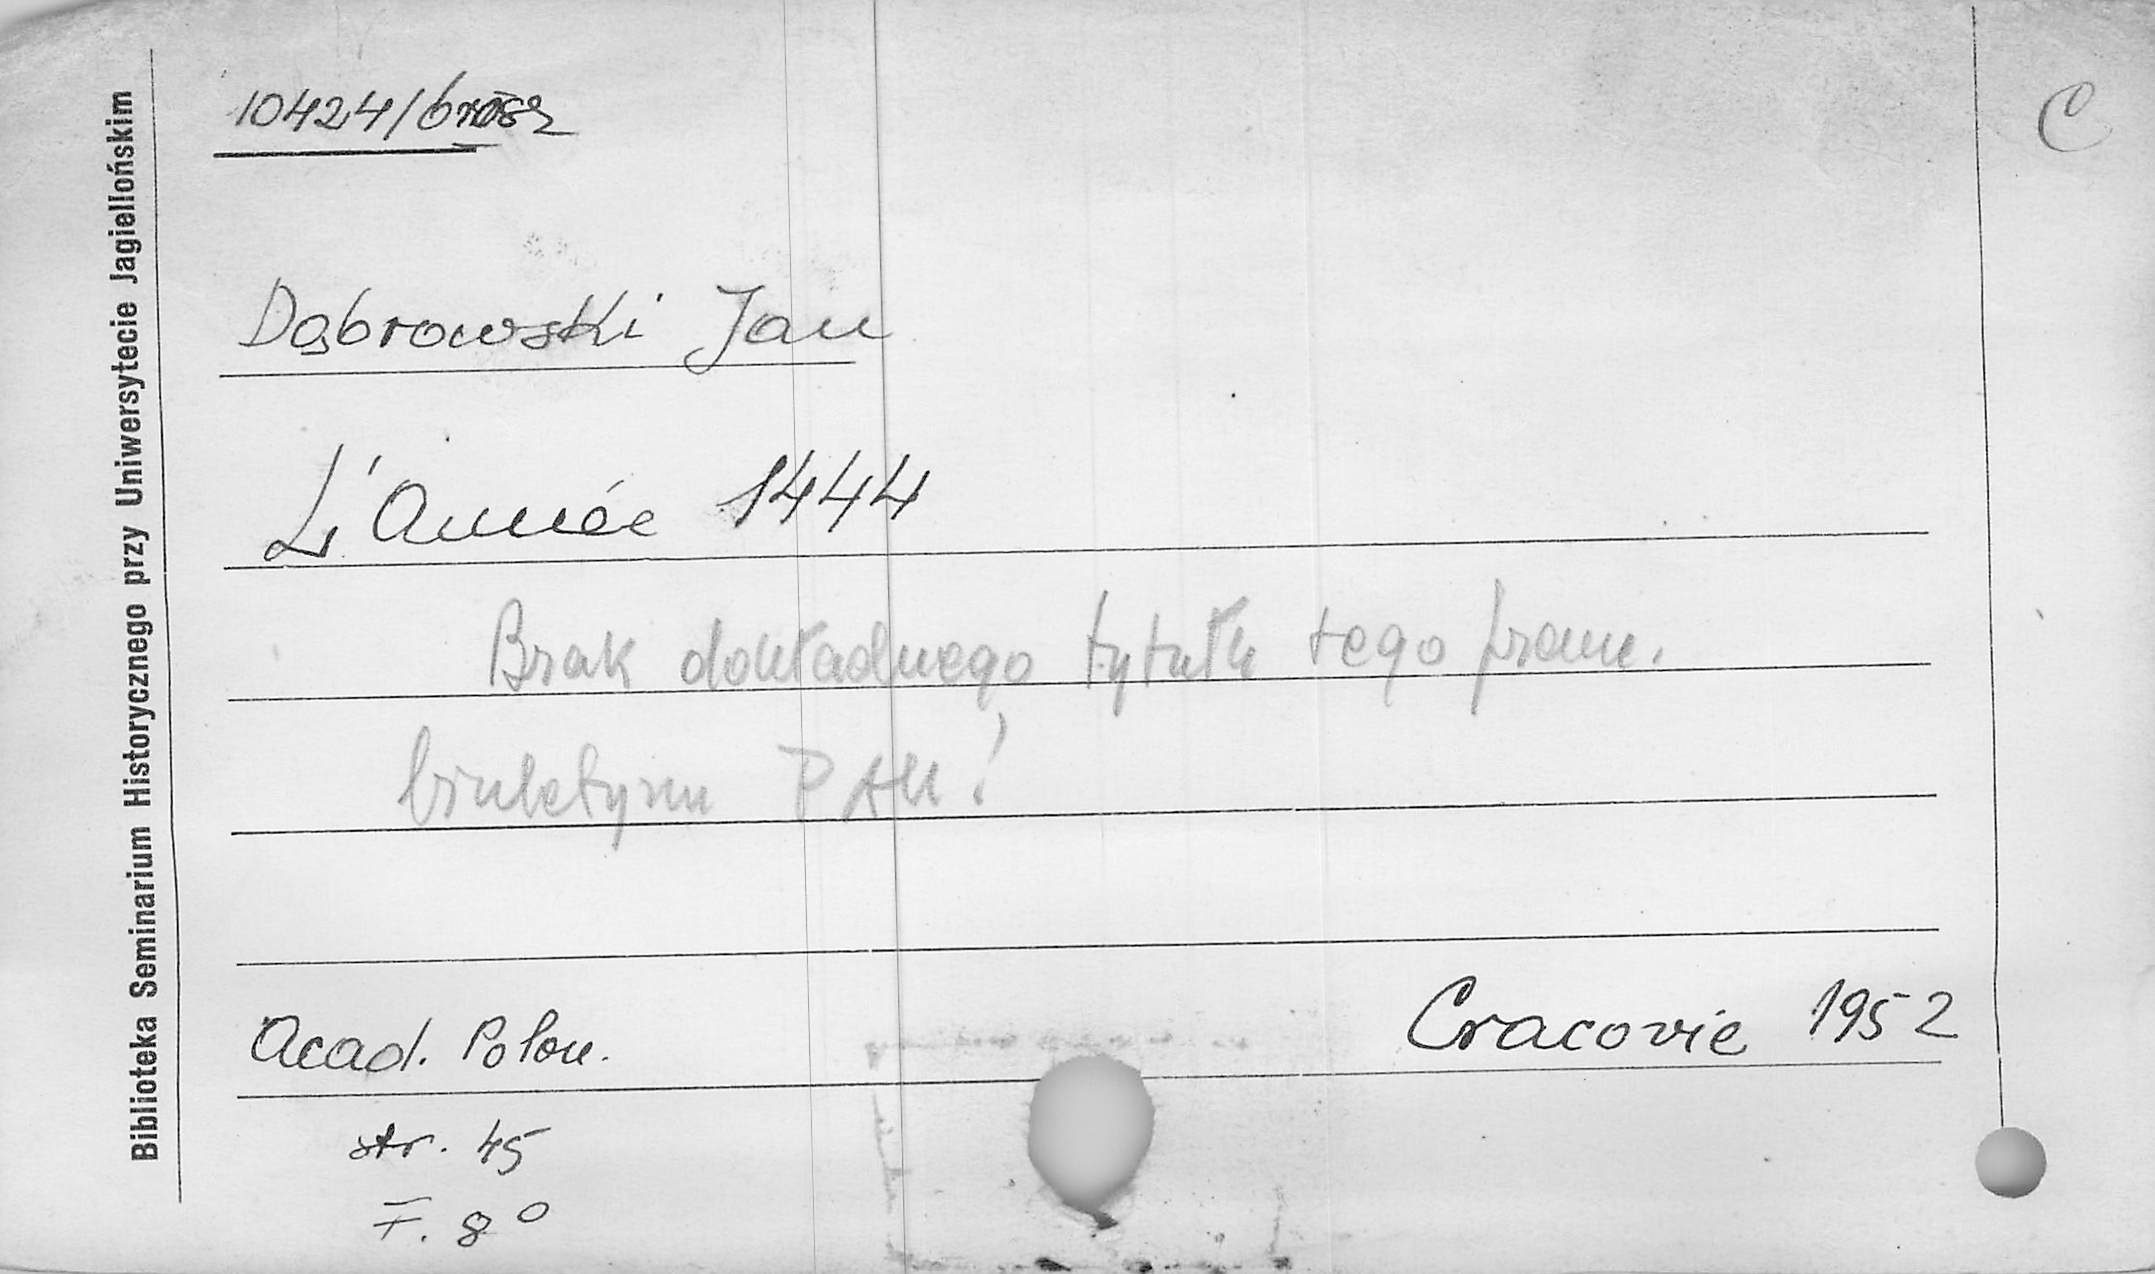 10424/brosz
C
Dąbrowski Jan
L'Année 1444
Brak dokładnego tytułu tego franc.
biuletynu PAU!
Acad. Polon. Cracovie 1952
str. 45
F. 8°
Biblioteka Seminarium Historycznego przy Uniwersytecie Jagiellońskim